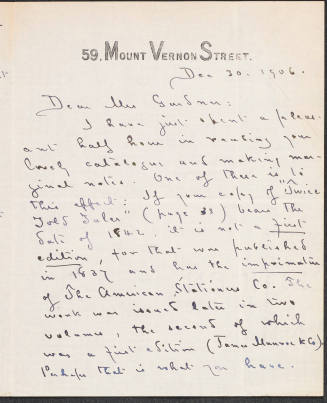 59, MOUNT VERNON STREET.
Dec 30. 1906.
Dear Mrs Gardner:
I have just spent a pleas-
ant half hour in reading your
lovely catalogue and making mar-
ginal notes. One of these is to
this effect: If your copy of "Twice
Told Tales" (page 33) bears the
date of 1842, it is not a first
edition, for that was published
in 1837 and has the imprimatur
of The American Stationers Co. The
work was issued later in two
volumes, the second of which
was a first edition (James Munroe & Co).
Perhaps that is what you have.